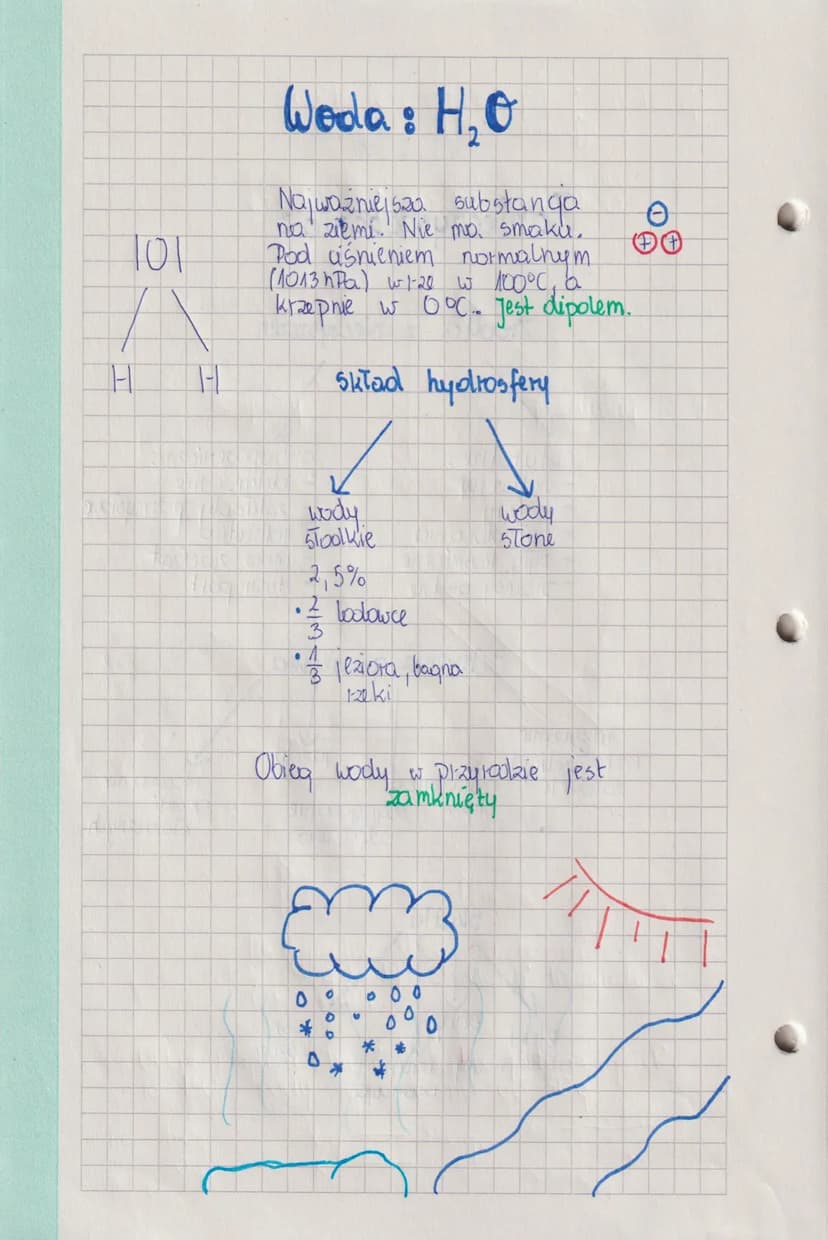 Woda: H₂O
Najważniejsza substancja
na ziemi. Nie ma smaku.
Pod ciśnieniem normalnym
(1013 hPa) wrze w 100°C, a
krzepnie w 0°C. Jest dipolem.
−
+ +
|O|
H H
skład hydrosfery
wody
słodkie
wody
słone
2,5%
• 2/3 lodowce
• 1/3 jeziora, bagna
rzeki
Obieg wody w przyrodzie jest
zamknięty